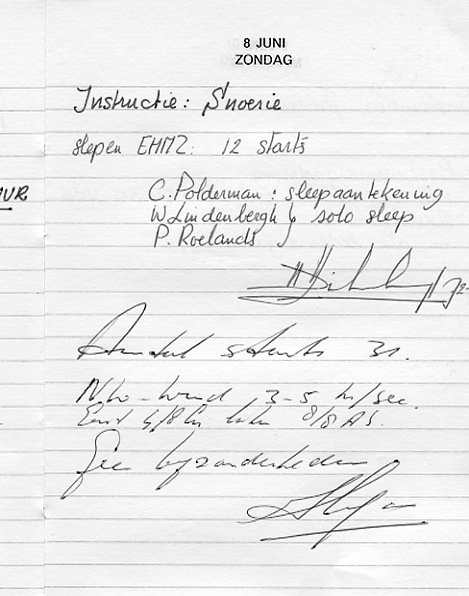 8 JUNI
ZONDAG
Instructie: Snoerie
slepen EHMZ: 12 starts
UUR
C. Polderman : sleepaantekening
W Lindenbergh } solo sleep
P. Roelands
Aantal starts 31.
NW-wind 3-5 m/sec.
Eerst 4/8 Cu later 8/8 AS.
Geen bijzonderheden